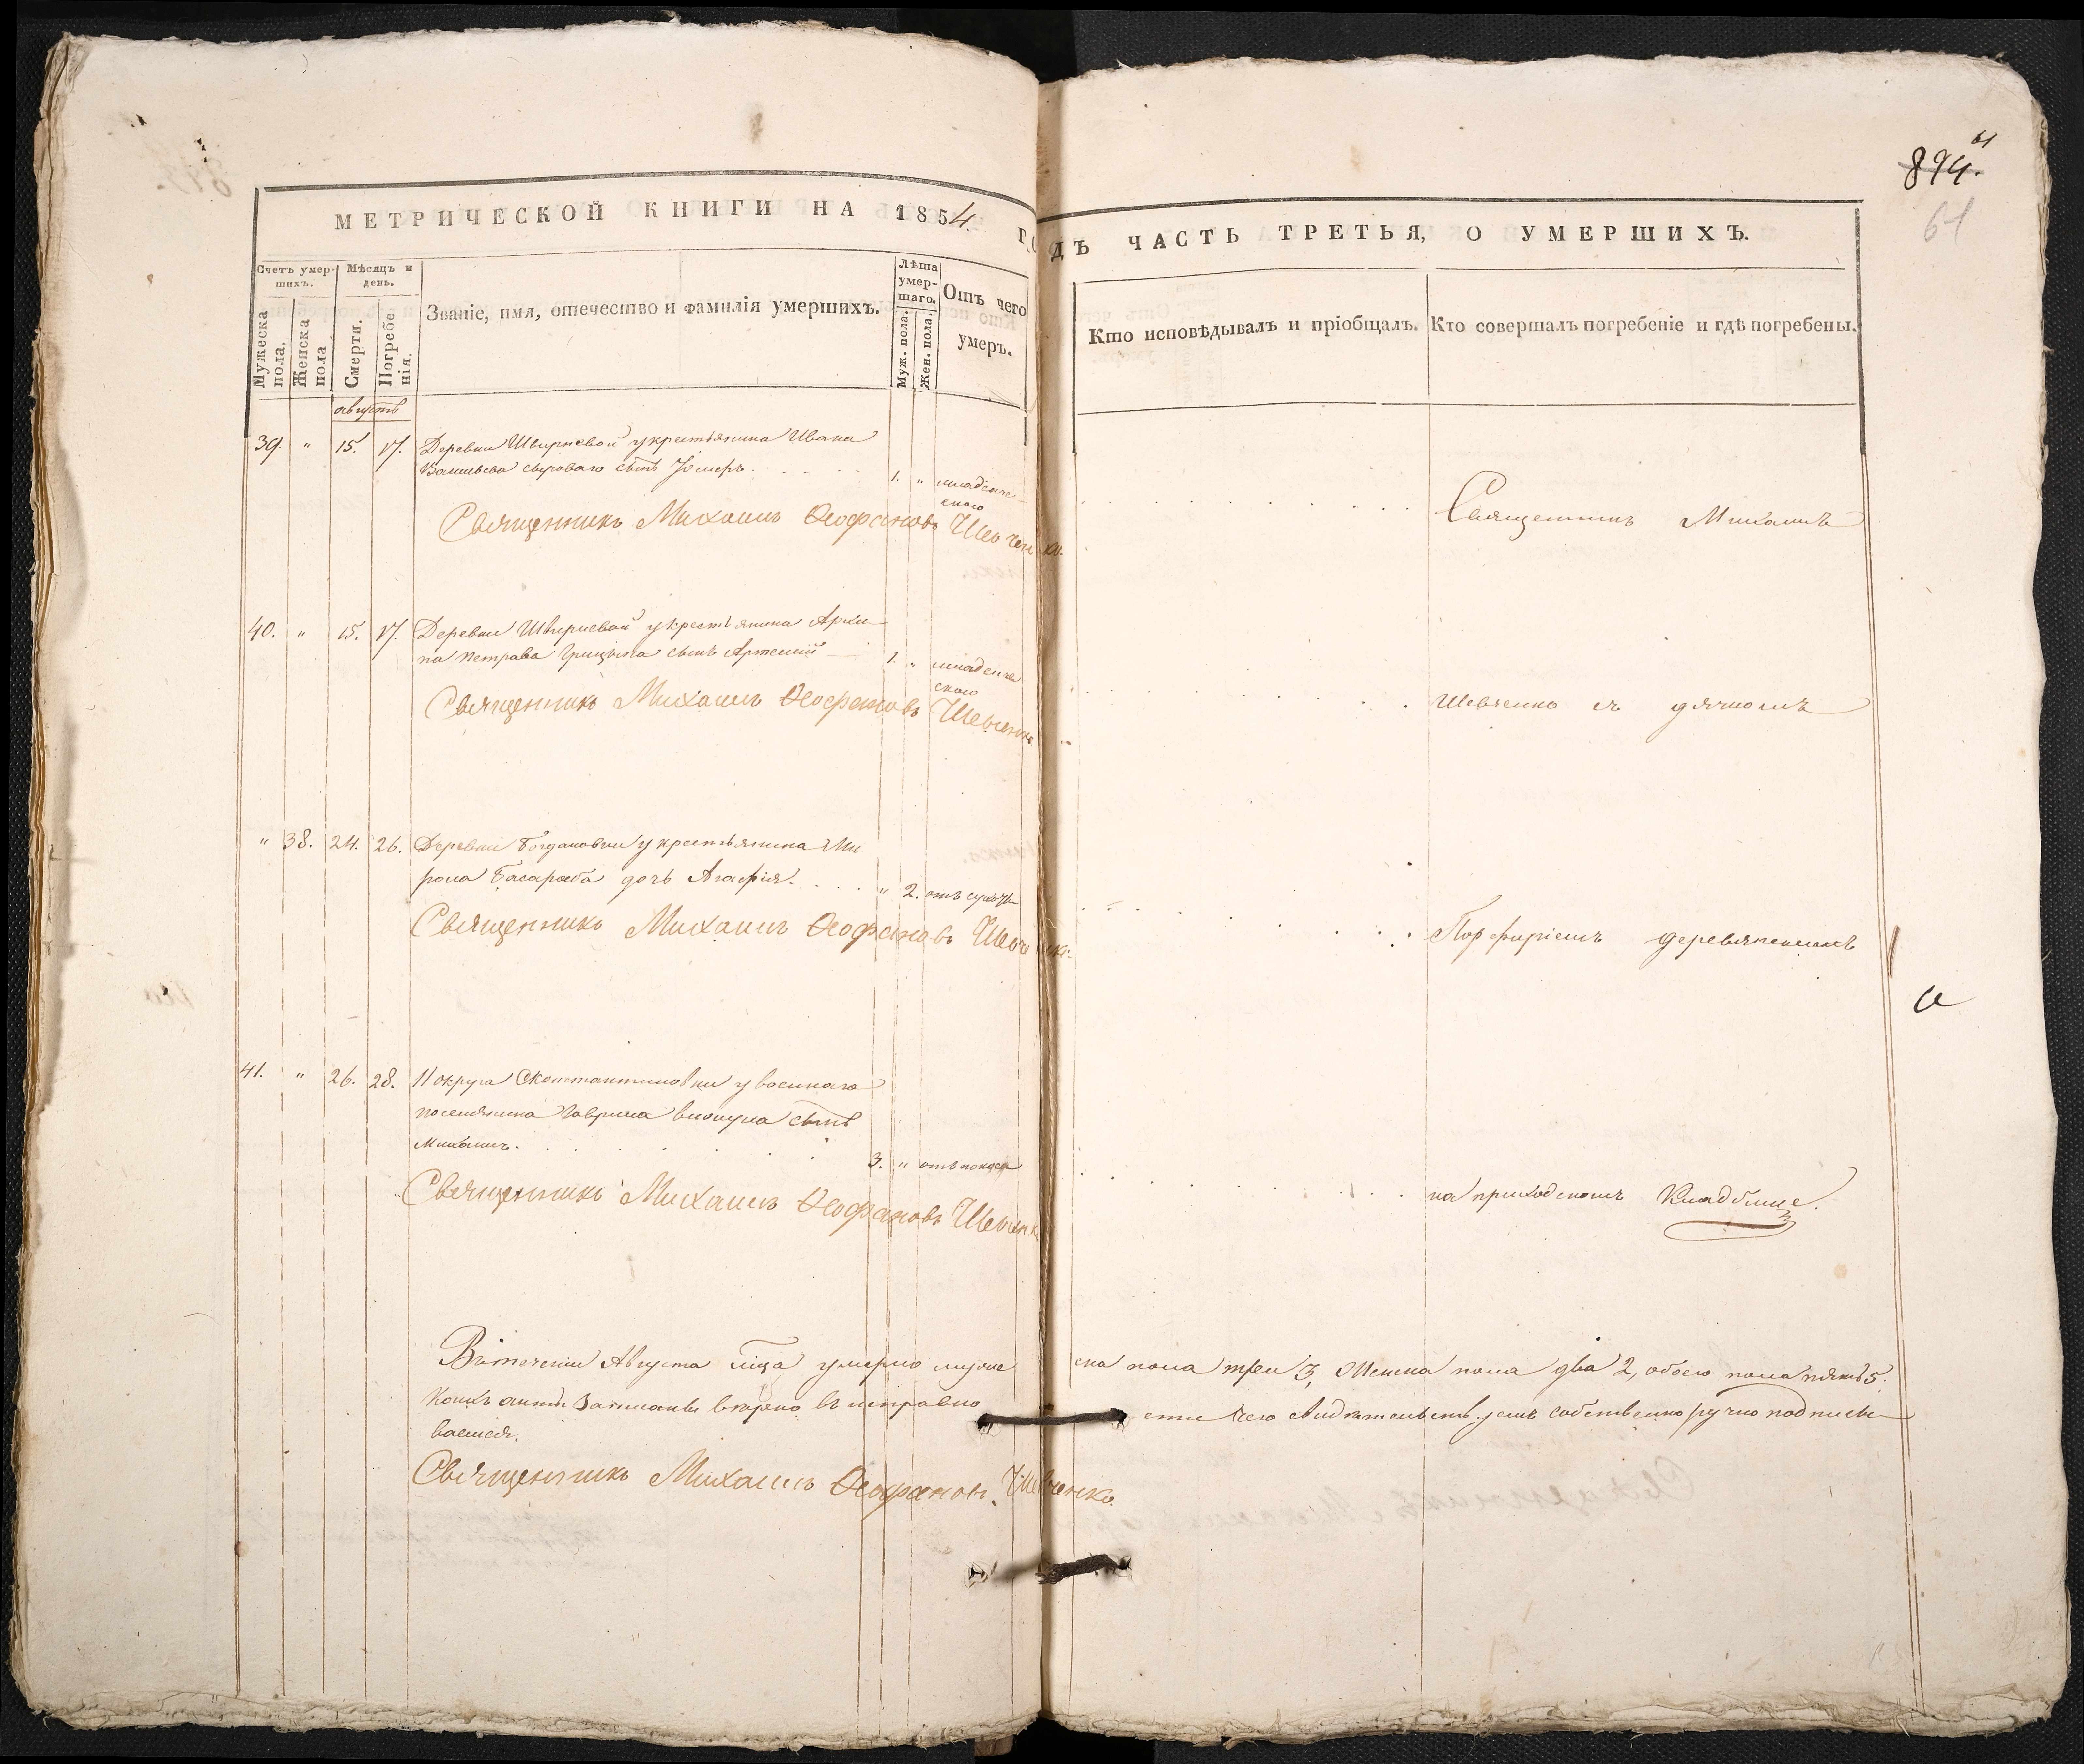 894.
61
61
МЕТРИЧЕСКОЙ КНИГИ НА 1854.
ГОДЪ ЧАСТЬ ТРЕТЬЯ, О УМЕРШИХЪ.
Счетъ умершихъ.
Мужеска пола.
Женска пола
Мѣсяцъ и день.
Смерти.
Погребенія.
Званіе, имя, отечество и фамилія умершихъ.
Лѣта умершаго.
Муж. пола.
Жен. пола.
Отъ чего умеръ.
Кто исповѣдывалъ и пріобщалъ.
Кто совершалъ погребеніе и гдѣ погребены.
августъ
39. " 15. 17. Деревни Швыревой у крестьянина Ивана
сынъ 1. " младенче
скаго
Священникъ Михаилъ Ѳеофановъ Шевченко.
Священникъ Михаилъ
40. " 15. 17. Деревни Швыревой у крестьянина Архи
па Петрова Грицына сынъ Артемій 1. " младенче
скаго
Священникъ Михаилъ Ѳеофановъ Шевченко
Шевченко съ дячкомъ
" 38. 24. 26. Деревни Богдановки у крестьянина Ми
рона Басараба дочь Агафія. " 2. отъ
Священникъ Михаилъ Ѳеофановъ Шевченко.
Порфиріемъ деревянкинымъ
41. " 26. 28. 11 округа Сконстантиновки у военнаго
поселянина Гаврила сынъ
Михаилъ. 3. "
Священникъ Михаилъ Ѳеофановъ Шевченко
на приходскомъ Кладбище.
Втеченіи Августа мца умерло муже ска пола три 3, Женска пола два 2, обоего пола пять 5.
коихъ акты записаны вѣрно въ исправно сти чего свидѣтельствуемъ собственно ручно подписы
ваемся.
Священникъ Михаилъ Ѳеофановъ Шевченко.